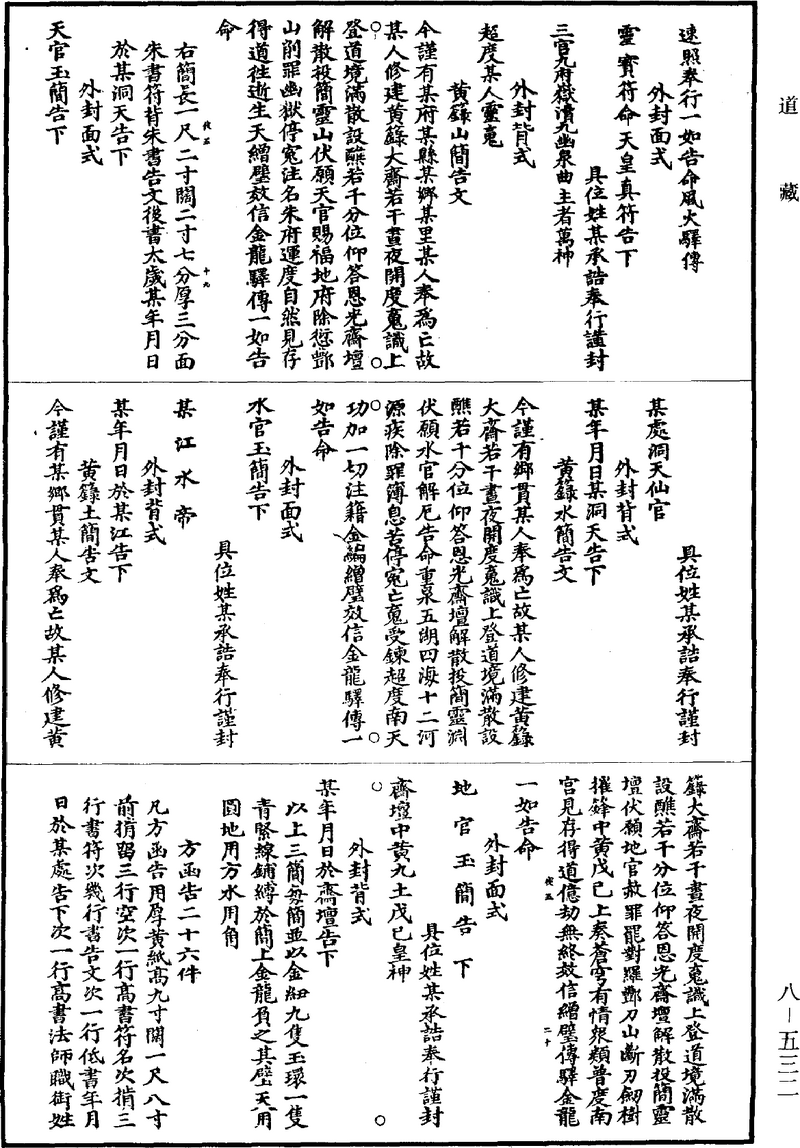 道藏
速照奉行一如告命風火驛傳
外封面式
靈寶符命天皇真符告下
具位姓某承誥奉行謹封
三官九府嶽瀆九幽泉曲主者萬神
外封背式
超度某人靈䰟
黃籙山簡告文
今謹有某府某縣某鄉某里某人奉爲亡故
某人修建黃籙大齋若干晝夜開度䰟識上
登道境滿散設醮若干分位仰答恩光齋壇
解散投簡靈山伏願天官賜福地府除愆酆
山削罪幽獄停寃注名朱府運度自然見存
得道徃逝生天繒璧效信金龍驛傳一如告
命
右簡長一尺二寸闊二寸七分厚三分面
朱書符背朱書告文後書太歲某年月日
於某洞天告下
外封面式
天官玉簡告下
某處洞天仙官
具位姓某承誥奉行謹封
外封背式
某年月日某洞天告下
黃籙水簡告文
今謹有鄉貫某人奉爲亡故某人修建黃籙
大齋若干晝夜開度䰟識上登道境滿散設
醮若干分位仰答恩光齋壇解散投簡靈淵
伏願水官解厄告命重泉五湖四海十二河
源疾除罪簿息苦停寃亡䰟受鍊超度南天
功加一切注籍金編繒璧效信金龍驛傳一
如告命
外封面式
水官玉簡告下
具位姓某承誥奉行謹封
某江水帝
外封背式
某年月日於某江告下
黃籙土簡告文
今謹有某鄉貫某人奉爲亡故某人修建黃
籙大齋若干晝夜開度䰟識上登道境滿散
設醮若干分位仰答恩光齋壇解散投簡靈
壇伏願地官赦罪罷對羅酆刀山斷刃劒樹
摧鋒中黃戊己上奏蒼穹有情衆類普度南
宮見存得道億劫無終效信繒璧傳驛金龍
一如告命
外封面式
地官玉簡告下
具位姓某承誥奉行謹封
齋壇中黃九土戊己皇神
外封背式
某年月日於齋壇告下
以上三簡每簡並以金鈕九隻玉環一隻
青𦂳線鋪縛於簡上金龍負之其璧天用
圓地用方水用角
方函告二十六件
凡方函告用厚黃紙高九寸闊一尺八寸
前捎留三行空次一行高書符名次捎三
行書符次幾行書告文次一行低書年月
日於某處告下次一行高書法師職銜姓
八-五三二